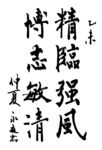 乙未
精臨强風
博志敏清
仲夏